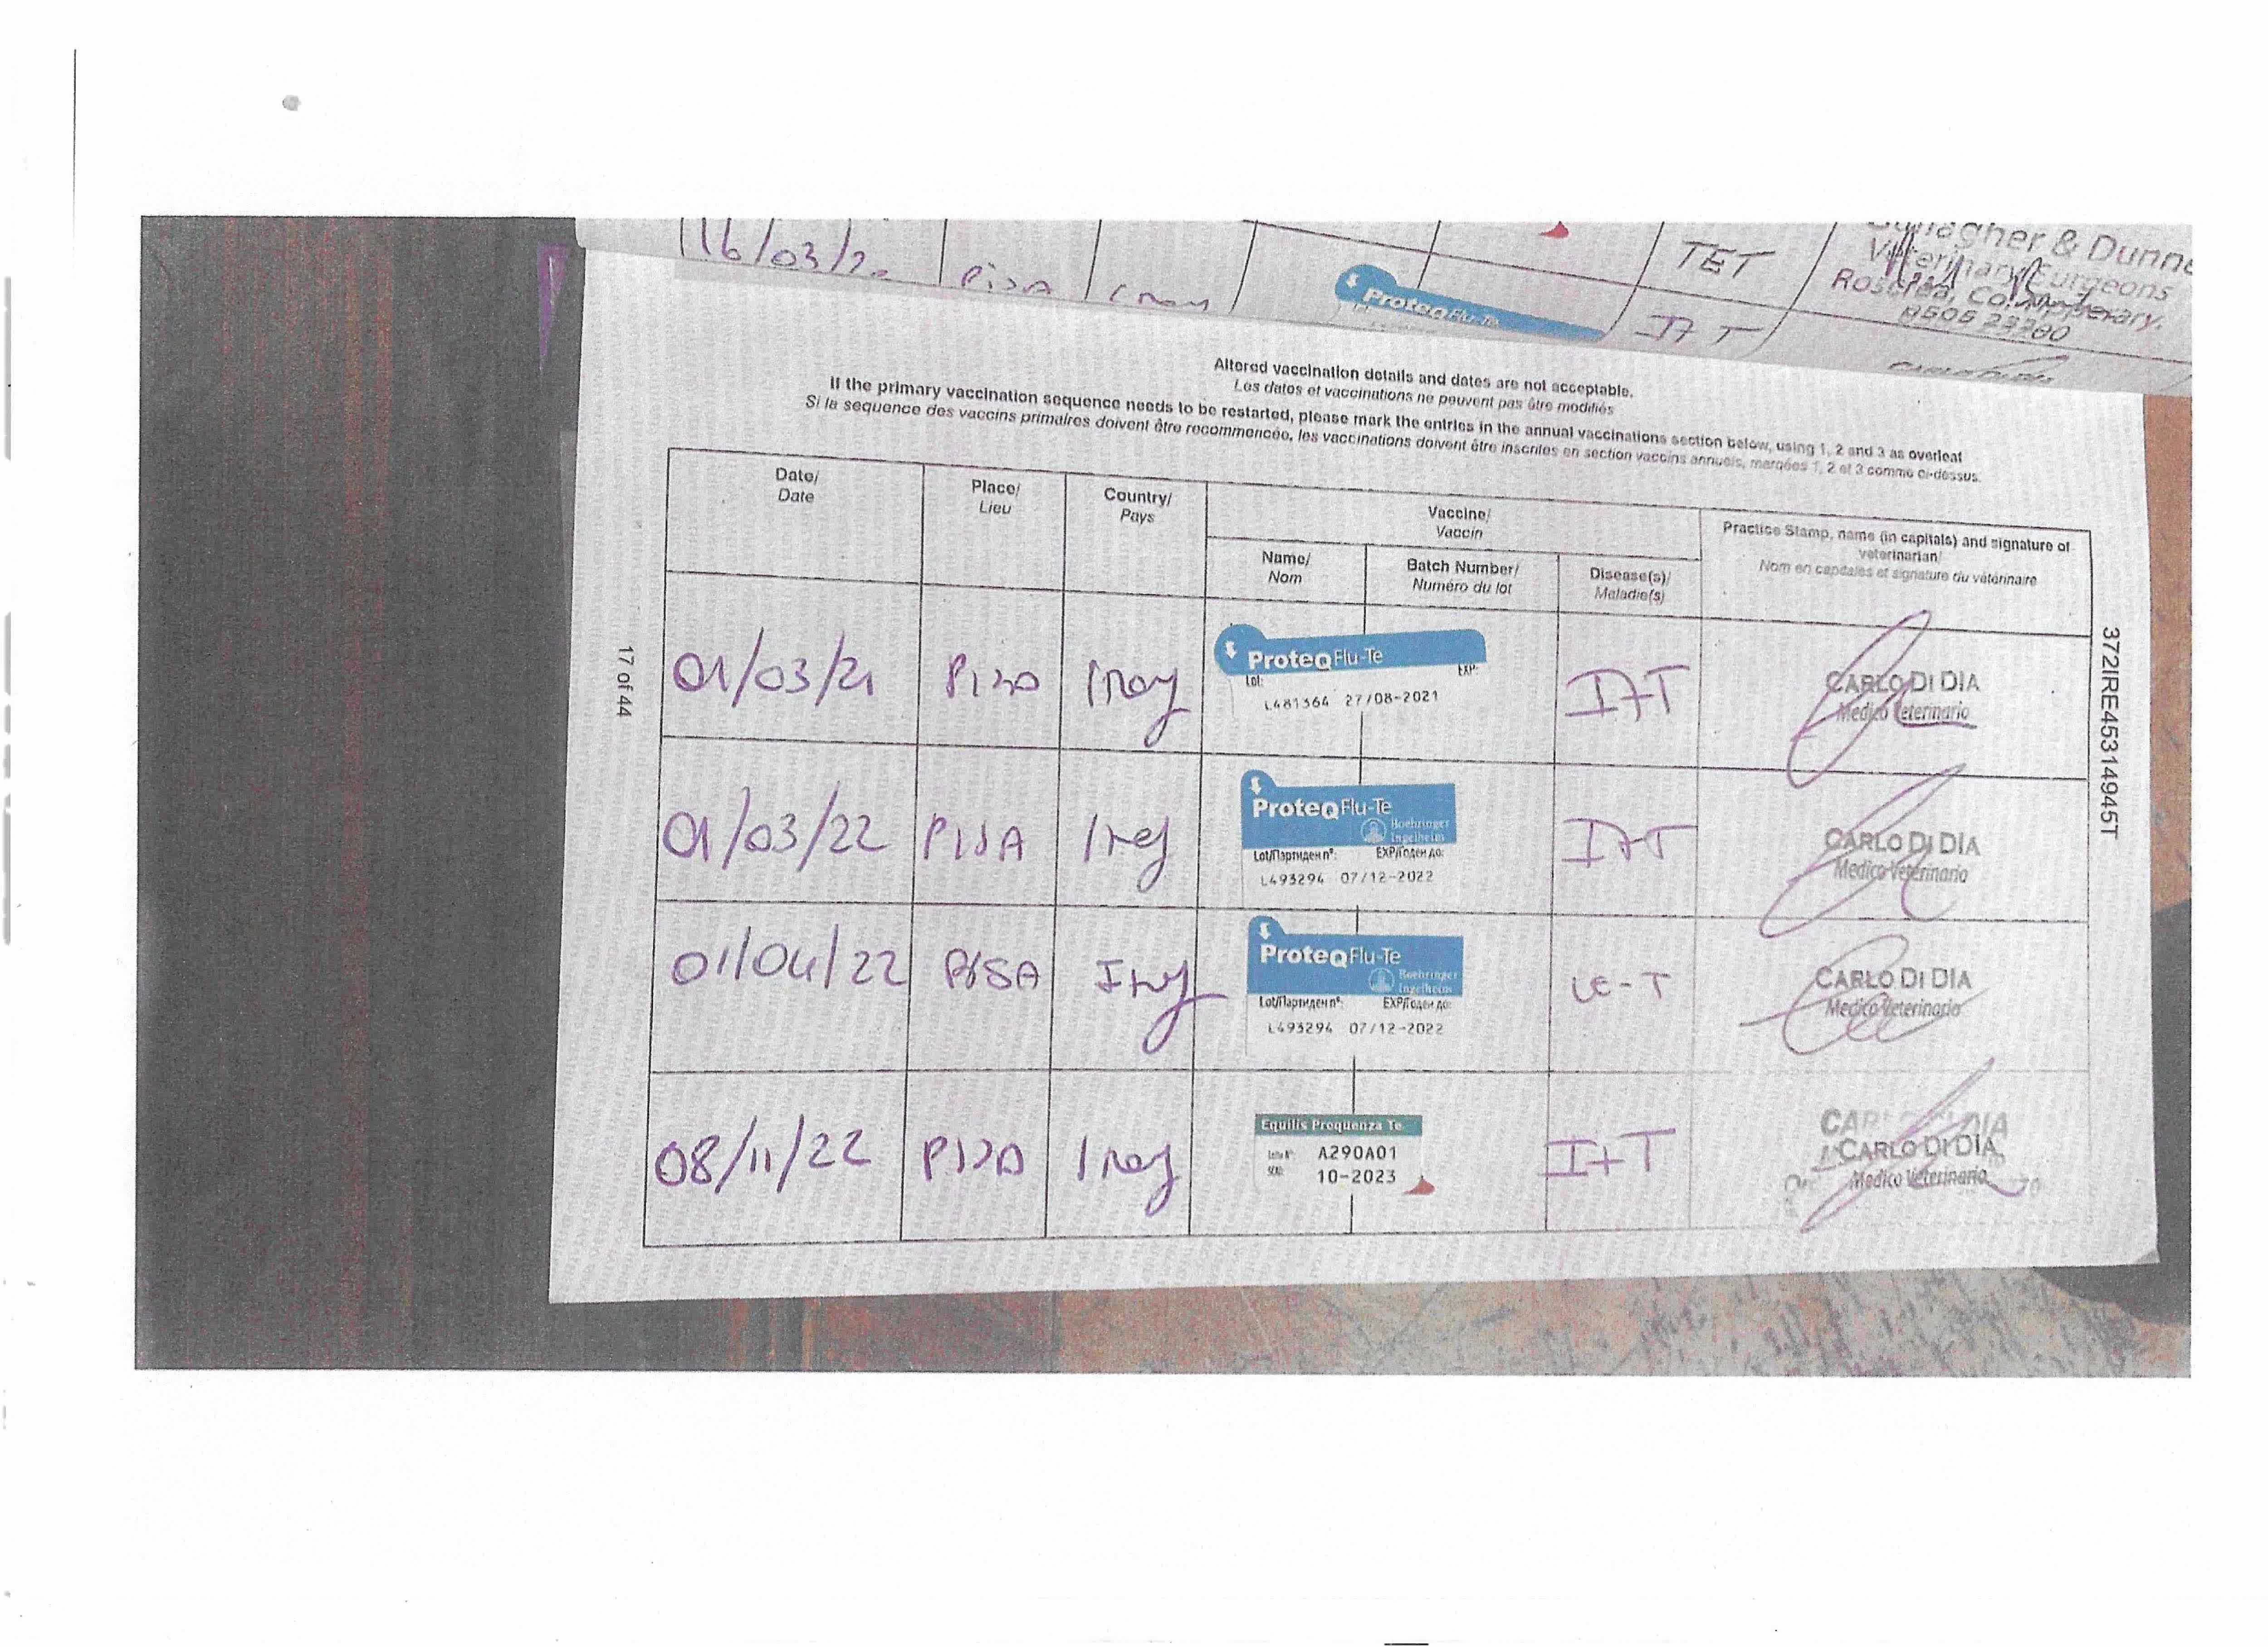 16/03/2
PisA
TET
IFT
ProteqFlu-Te
& Dunne
Veterinary Surgeons
Roscrea, Co. Tipperary.
0505 23280
Altered vaccination details and dates are not acceptable.
Les dates et vaccinations ne peuvent pas être modifiés
If the primary vaccination sequence needs to be restarted, please mark the entries in the annual vaccinations section below, using 1, 2 and 3 as overleaf
Si la sequence des vaccins primaires doivent être recommencée, les vaccinations doivent être inscrites en section vaccins annuels, marqées 1, 2 et 3 comme ci-dessus.
Date/ Date
Place/ Lieu
Country/ Pays
Vaccine/ Vaccin
Name/ Nom
Batch Number/ Numéro du lot
Disease(s)/ Maladie(s)
Practice Stamp, name (in capitals) and signature of veterinarian/
Nom en capitales et signature du vétérinaire
01/03/21
PISA
ProteqFlu-Te
Lot: EXP:
L481364 27/08-2021
IFT
CARLO DI DIA
Medico Veterinario
01/03/22
PISA
ProteqFlu-Te
Boehringer Ingelheim
Lot/Партиден n°: EXP/Годен до:
L493294 07/12-2022
IFT
CARLO DI DIA
Medico Veterinario
01/04/22
PISA
ProteqFlu-Te
Boehringer Ingelheim
Lot/Партиден n°: EXP/Годен до:
L493294 07/12-2022
IE-T
CARLO DI DIA
Medico Veterinario
08/11/22
PISA
Equilis Prequenza Te
A290A01
10-2023
I+T
CARLO DI DIA
Medico Veterinario
17 of 44
372IRE45314945T